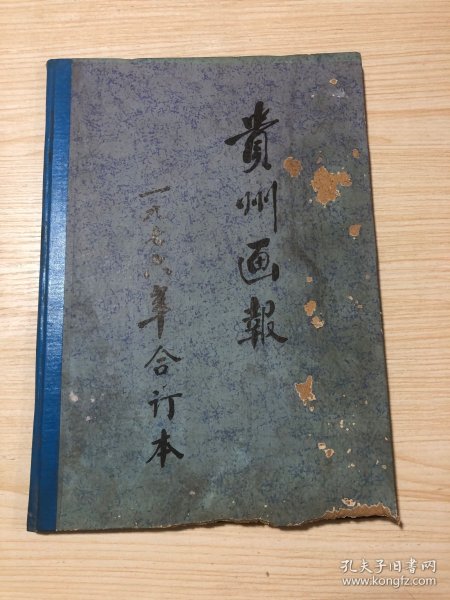 貴州画報
一九七八年合订本
孔夫子旧书网
www.kongfz.com